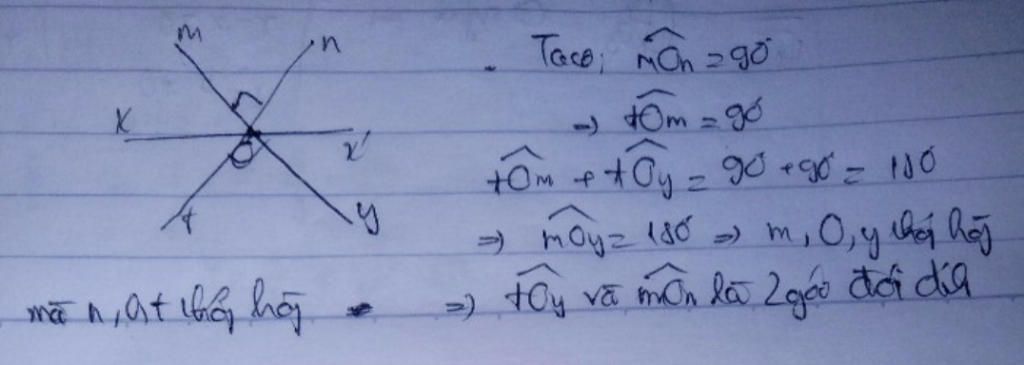 m
n
x
x'
O
t
y
Ta có; mÔn = 90°
=> tÔm = 90°
tÔm + tÔy = 90° + 90° = 180°
=> mÔy = 180° => m, O, y thẳng hàng
mà n, O, t thẳng hàng => tÔy và mÔn là 2 góc đối đỉnh